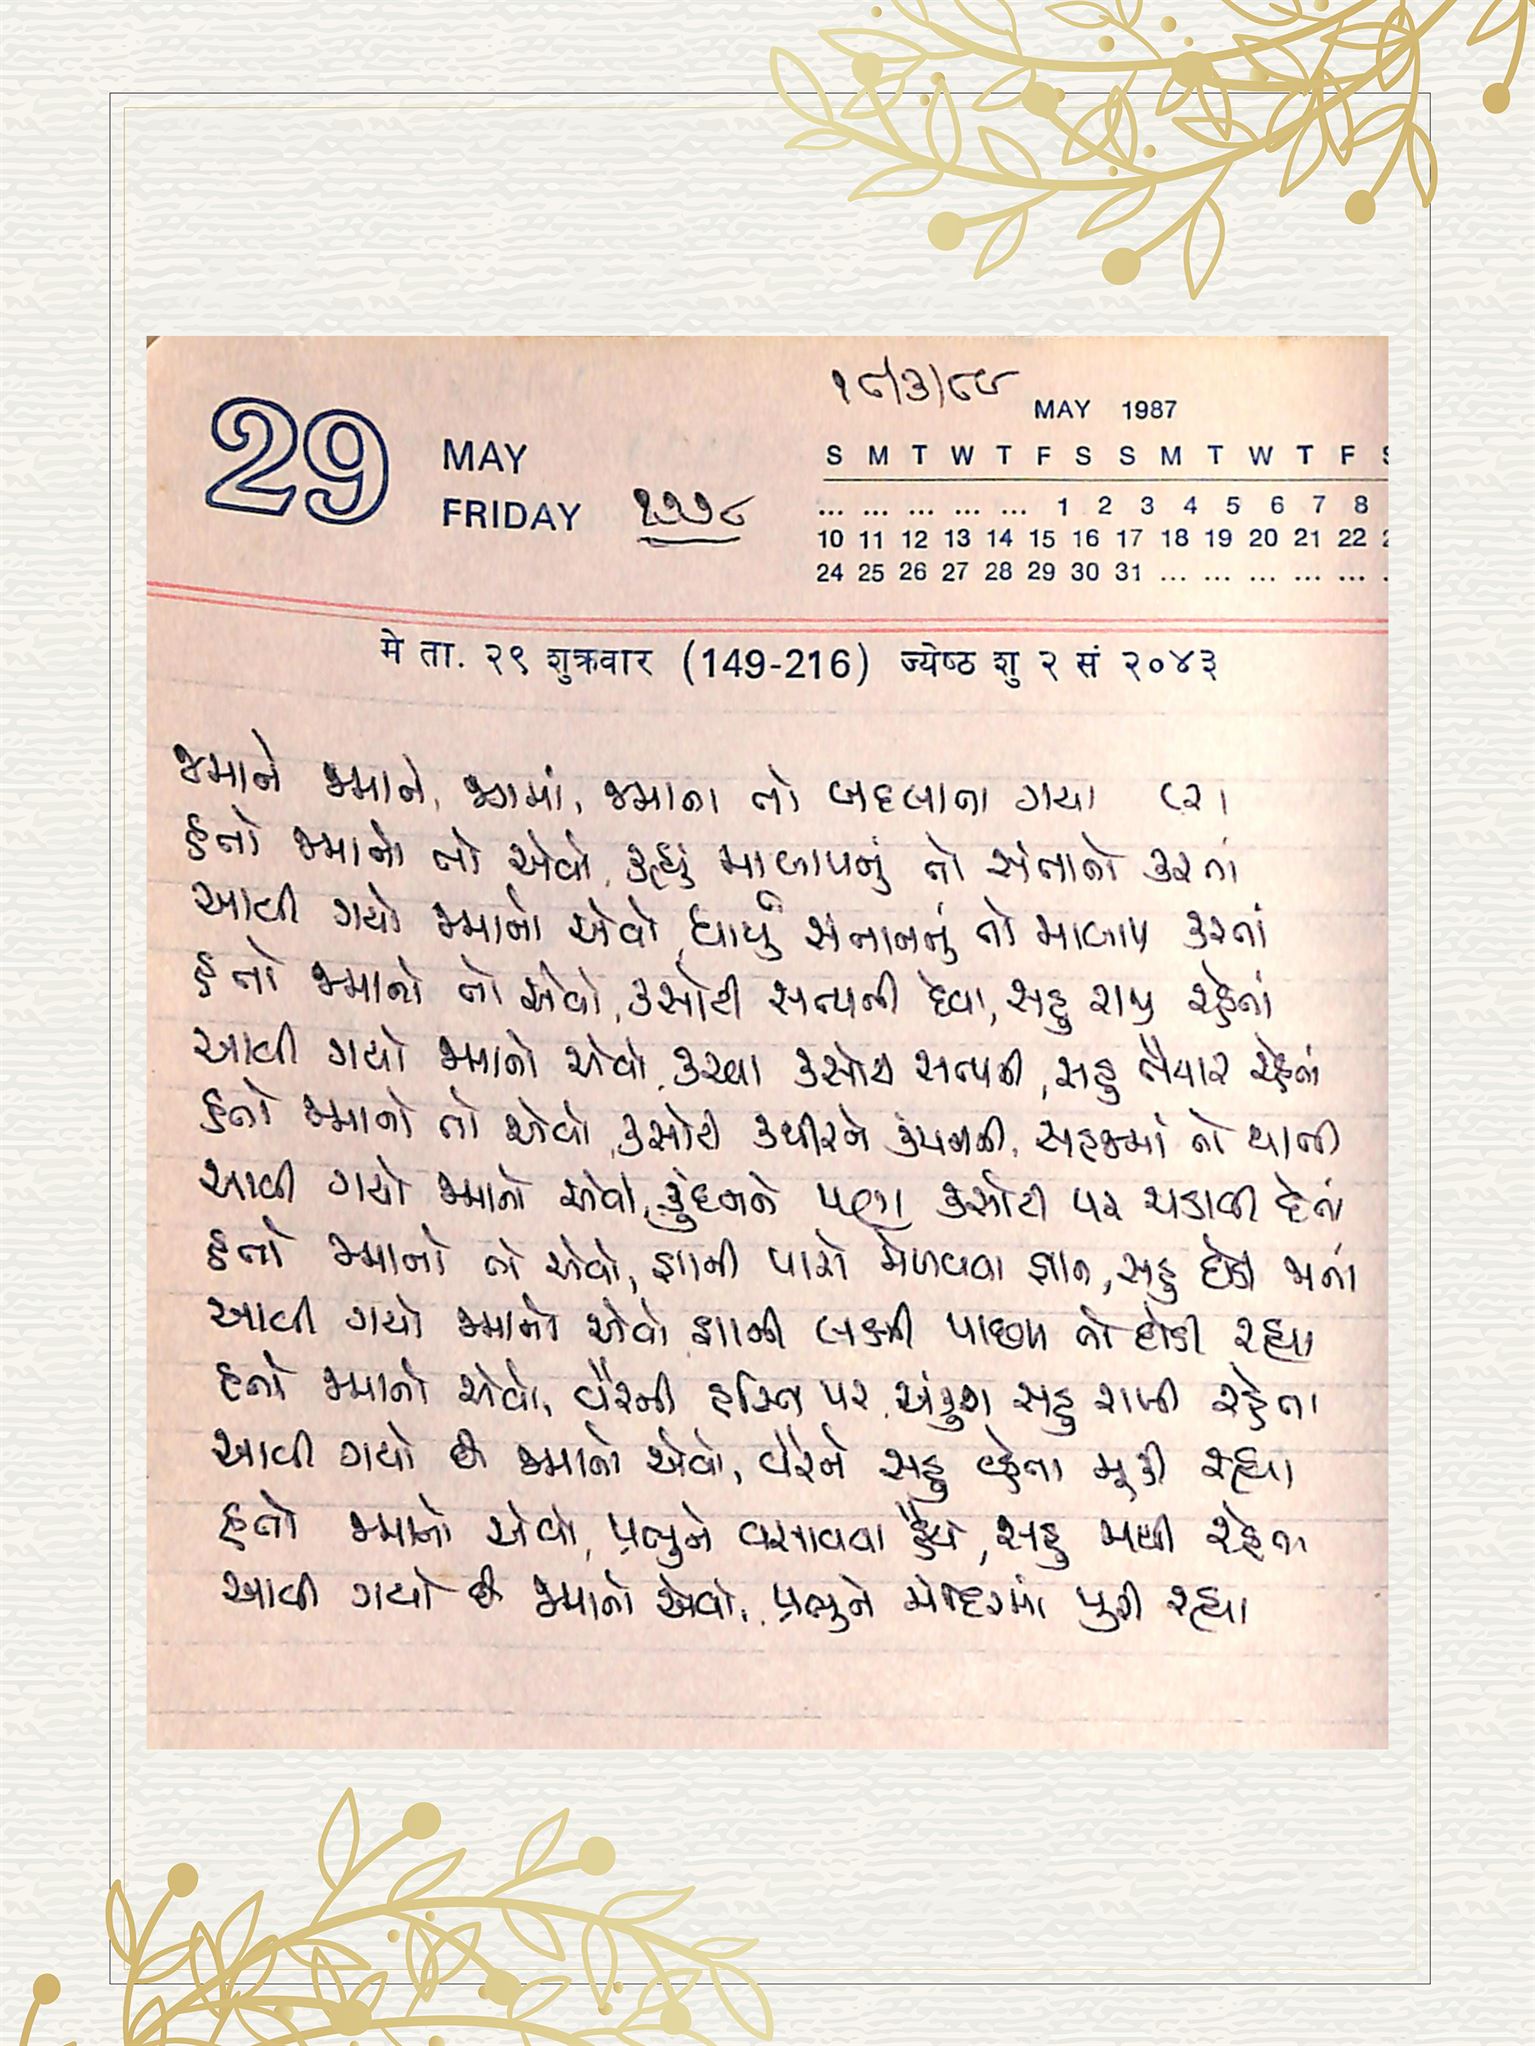 ૧૮/૩/૮૯
29 MAY FRIDAY ૧૭૭૮
MAY 1987
S M T W T F S S M T W T F S
... ... ... ... ... 1 2 3 4 5 6 7 8
10 11 12 13 14 15 16 17 18 19 20 21 22 2
24 25 26 27 28 29 30 31 ... ... ... ... ... .
मे ता. २९ शुक्रवार (149-216) ज्येष्ठ शु २ सं २०४३
જમાને જમાને, જગમાં, જમાના તો બદલાતા ગયા (૨)
હતો જમાનો તો એવો, કહ્યું માબાપનું તો સંતાનો કરતાં
આવી ગયો જમાનો એવો, ધાર્યું સંતાનનું તો માબાપ કરતાં
હતો જમાનો તો એવો, કસોટી સત્યની દેવા, સહુ રાજી રહેતાં
આવી ગયો જમાનો એવો, કરવા કસોટી સત્યની, સહુ તૈયાર રહેતાં
હતો જમાનો તો એવો, કસોટી કથીરને કંચનની, સહજમાં તો થાતી
આવી ગયો જમાનો એવો, કુંદનને પણ કસોટી પર ચડાવી દેતાં
હતો જમાનો તો એવો, જ્ઞાની પાસે મેળવવા જ્ઞાન, સહુ દોડી જતાં
આવી ગયો જમાનો એવો જ્ઞાની લક્ષ્મી પાછળ તો દોડી રહ્યા
હતો જમાનો એવો, વૈરની હસ્તિ પર અંકુશ સહુ રાખી રહેતા
આવી ગયો છે જમાનો એવો, વૈરને સહુ વ્હેતા મૂકી રહ્યા
હતો જમાનો એવો, પ્રભુને વસાવવા હૈયે, સહુ મથી રહેતા
આવી ગયો છે જમાનો એવો, પ્રભુને મંદિરમાં પુરી રહ્યા